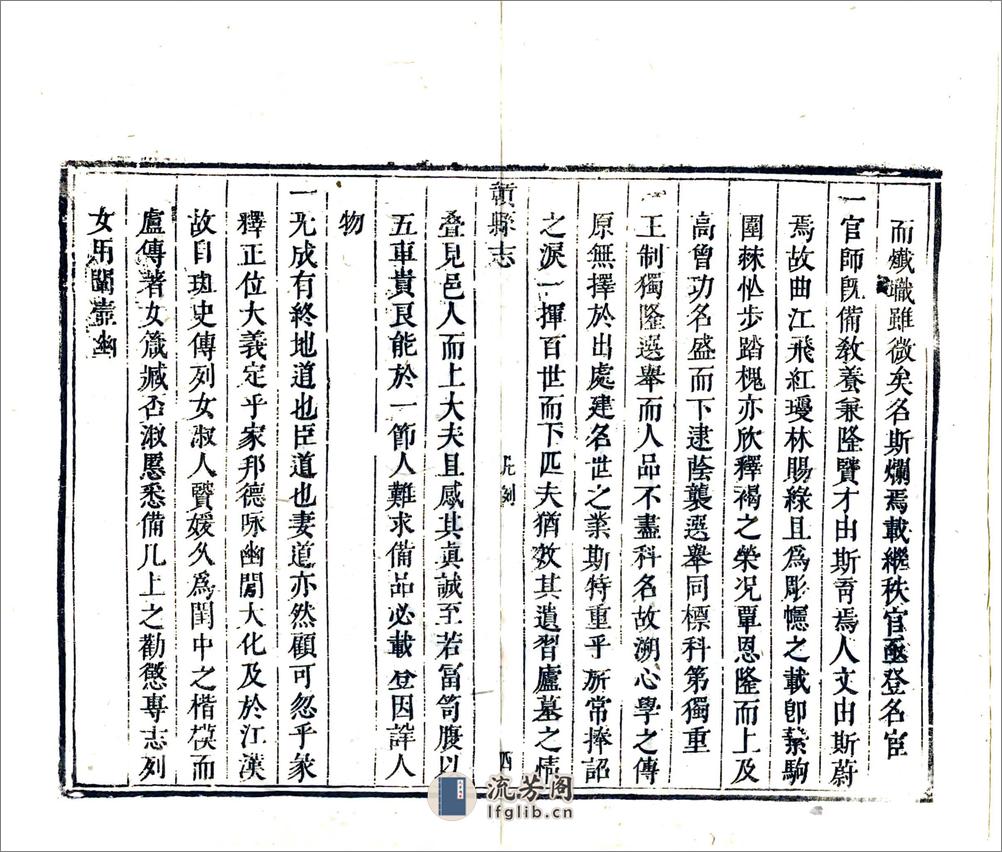 而熾職雖微矣名斯爛焉載繼秩官亟登名宦
一官師既備教養兼隆賢才由斯育焉人文由斯蔚
焉故曲江飛紅瓊林賜綠且為彫幰之載卽縶駒
圍棘忪步踏槐亦欣釋褐之榮况覃恩隆而上及
高曾功名盛而下逮蔭襲選舉同標科第獨重
王制獨隆選舉而人品不盡科名故溯心學之傳
原無擇於出處建名世之業斯特重乎所常捧詔
之淚一揮百世而下匹夫猶效其遺習廬墓之情
贛縣志
凡例
四
叠見邑人而上大夫且感其眞誠至若富笥腹以
五車貴良能於一節人難求備品必載登因詳人
物
一无成有終地道也臣道也妻道亦然顧可忽乎彖
釋正位大義定乎家邦德咏幽閒大化及於江漢
故自班史傳列女淑人賢媛久為閨中之楷模而
盧傳著女箴臧否淑慝悉備几上之勸懲專志列
女用闡壼幽
流芳阁
lfglib.cn